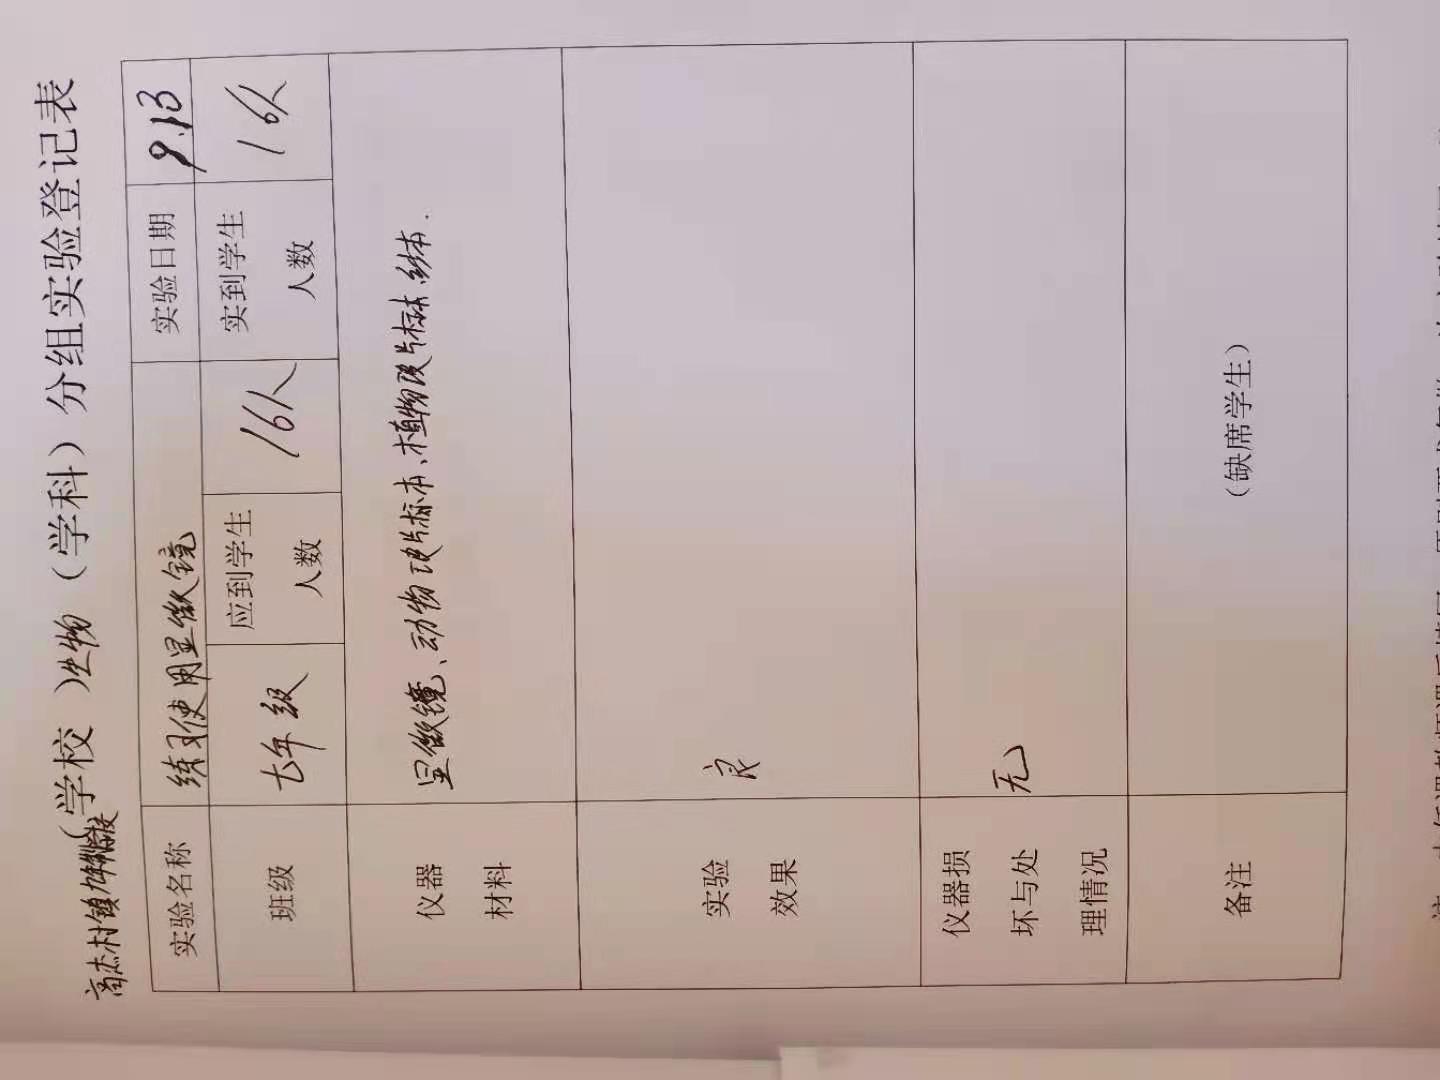 高杰村镇九年制学校（学校）生物（学科）分组实验登记表
实验名称 练习使用显微镜 实验日期 9.13
班级 七年级 应到学生人数 16人 实到学生人数 16人
仪器材料 显微镜、动物玻片标本、植物玻片标本、纱布.
实验效果 良
仪器损坏与处理情况 无
备注 （缺席学生）